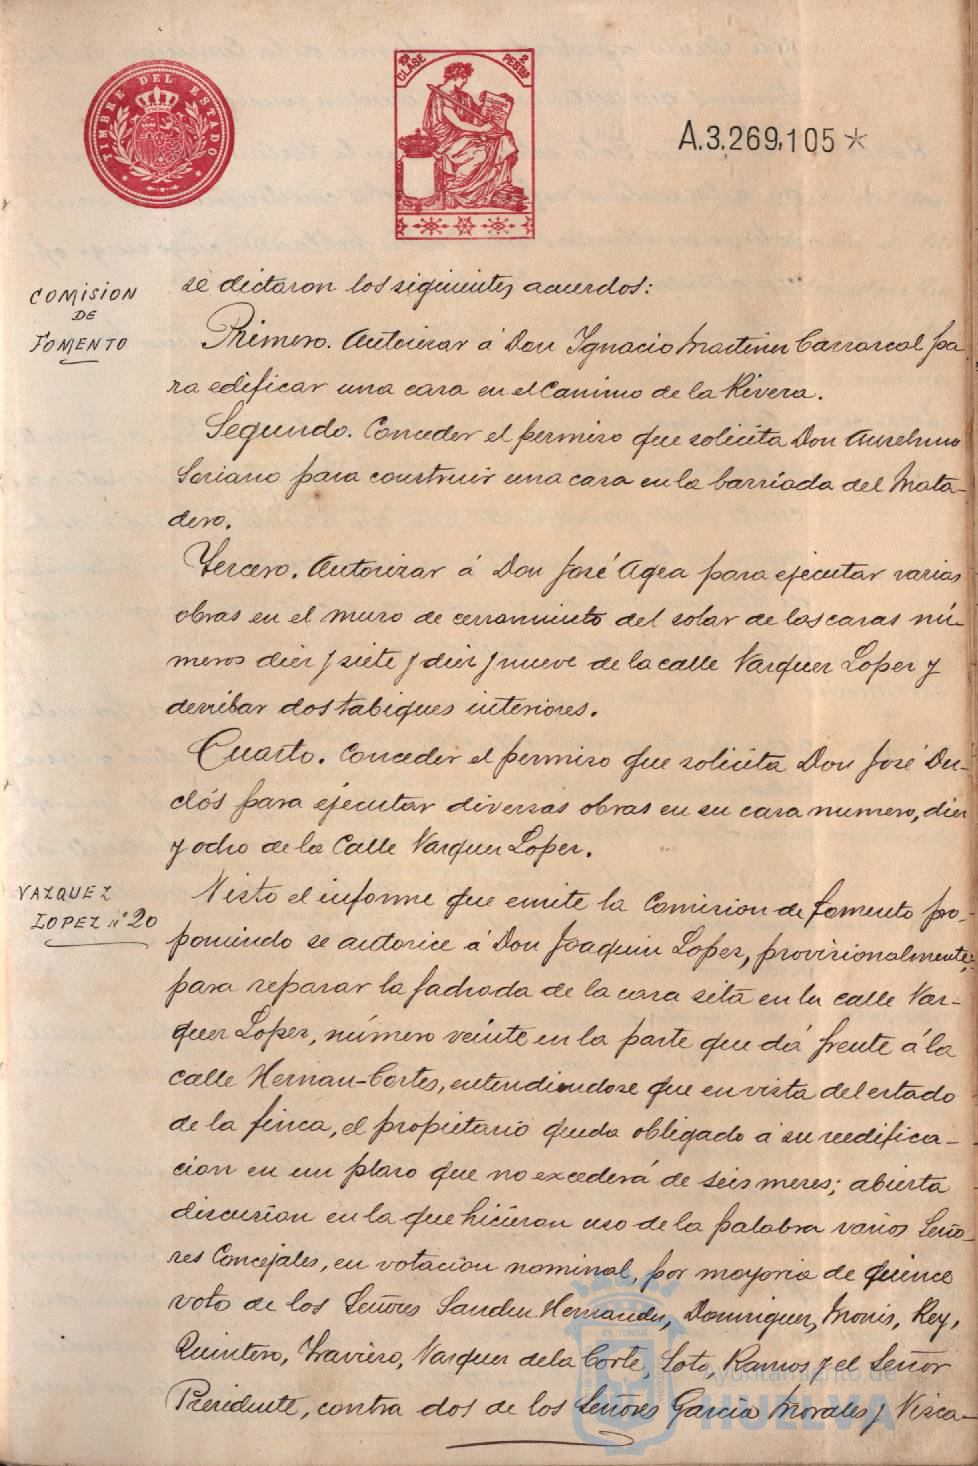 TIMBRE DEL ESTADO
10ª CLASE
2 PESETAS
A.3,269,105 *
COMISION
DE
FOMENTO
se dictaron los siguientes acuerdos:
Primero. Autorizar á Don Ignacio Martinez Carrascal pa-
ra edificar una casa en el Camino de la Rivera.
Segundo. Conceder el permiso que solicita Don Anselmo
Soriano para construir una casa en la barriada del Mata-
dero.
Tercero. Autorizar á Don José Agea para ejecutar varias
obras en el muro de cerramiento del solar de las casas nú-
meros diez y siete y diez y nueve de la calle Vazquez Lopez y
derribar dos tabiques interiores.
Cuarto. Conceder el permiso que solicita Don José Du-
clós para ejecutar diversas obras en su casa numero, diez
y ocho de la Calle Vazquez Lopez.
VAZQUEZ
LOPEZ nº 20
Visto el informe que emite la Comision de fomento pro-
poniendo se autorice á Don Joaquin Lopez, provisionalmente,
para reparar la fachada de la casa sita en la calle Vaz-
quez Lopez, número veinte en la parte que dá frente á la
calle Hernan-Cortes, entendiendose que en vista del estado
de la finca, el propietario queda obligado á su reedifica-
cion en un plazo que no excederá de seis meses; abierta
discusion en la que hicieron uso de la palabra varios Seño-
res Concejales, en votacion nominal, por mayoria de quince
voto de los Señores Sanchez Hernandez, Dominguez, Monis, Rey,
Quintero, Traviero, Vazquez de la Corte, Soto, Ramos y el Señor
Presidente, contra dos de los Señores Garcia Morales y Visca-
Ayuntamiento de
HUELVA